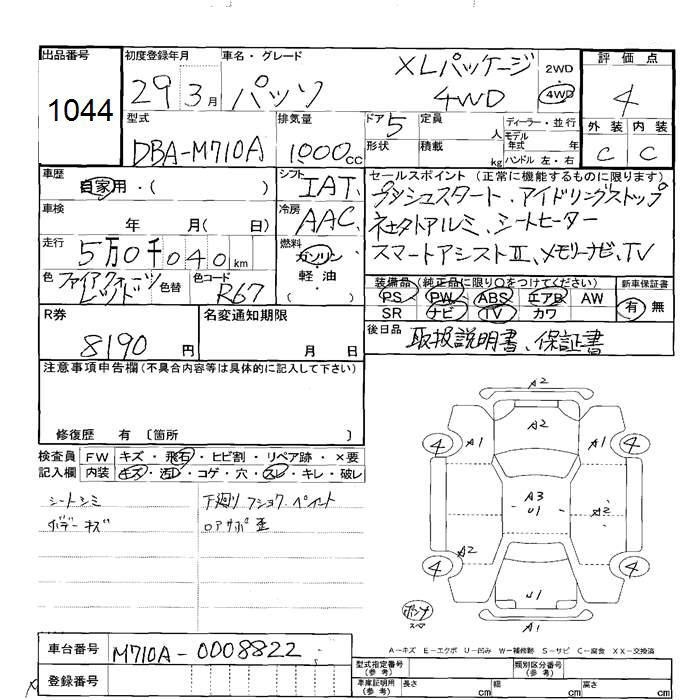 出品番号
1044
初度登録年月
29 3月
車名・グレード
パッソ
XLパッケージ
4WD
2WD
4WD
評価点
4
外装 内装
C C
型式
DBA-M710A
排気量
1000cc
ドア 5
形状
定員 人
積載 kg
ディーラー・並行
モデル
年式 年
ハンドル 左・右
車歴
自家用・( )
シフト
IAT
車検
年 月( 日)
冷房
AAC
走行
5万0千040km
燃料
ガソリン
軽・油
( )
色
ファイアクォーツ
レッド
色替
色コード
R67
セールスポイント(正常に機能するものに限ります)
プッシュスタート、アイドリングストップ
シートヒーター
スマートアシストII、メモリーナビ、TV
装備品(純正品に限り○をつけてください)
PS PW ABS エアB AW
SR ナビ TV カワ
新車保証書
有 無
後日品
取扱説明書、保証書
R券
8190円
名変通知期限
月 日
注意事項申告欄(不具合内容等は具体的に記入して下さい)
修復歴 有 〔箇所 〕
検査員
記入欄
FW キズ・飛石・ヒビ割・リペア跡・×要
内装 キズ・汚レ・コゲ・穴・スレ・キレ・破レ
シートシミ
ボデーキズ
下廻りフショク、ペイント
ロアサポ歪
A2
A2
4 A1 A1 4
A3
U1
A2
A2
4 4
U1
A1
A-キズ E-エクボ U-凹み W-補修跡 S-サビ C-腐食 XX-交換済
車台番号
M710A-0008822
登録番号
型式指定番号
(参考)
類別区分番号
(参考)
車庫証明用
(参考)
長さ cm 幅 cm 高さ cm